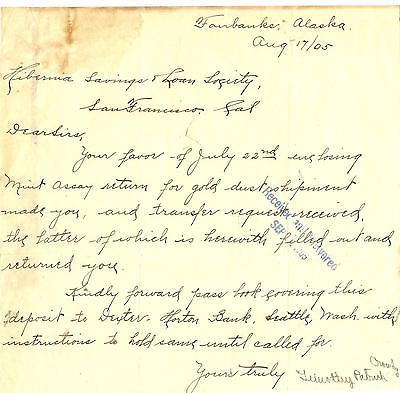 Fairbanks, Alaska.
Aug 17/05
Hibernia Savings & Loan Society,
San Francisco, Cal
Dear Sirs,
Your favor of July 22nd enclosing
Mint Assay return for gold dust shipment
made you, and transfer request received,
the latter of which is herewith filled out and
returned you.
Kindly forward pass book covering this
deposit to Dexter-Horton Bank, Seattle, Wash. with
instructions to hold same until called for.
Yours truly
Timothy Patrick
Received Answered
SEP